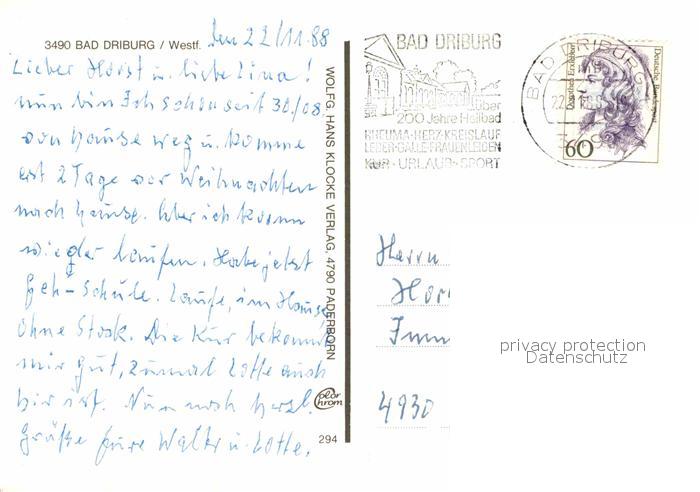 3490 BAD DRIBURG / Westf.
Den 22/11.88
Lieber Horst u. liebe Lina!
nun bin Ich schon seit 30/08
von hause weg u. komme
erst 2 Tage vor Weihnachten
nach hause. Aber ich kann
wieder laufen. Habe jetzt
Geh-Schule. Laufe, im Hause
ohne Stock. Die Kur bekommt
mir gut, zumal Lotte auch
hier ist. Nun noch herzl.
Grüße Eure Walter u. Lotte.
WOLFG. HANS KLOCKE VERLAG, 4790 PADERBORN
color
chrom
294
BAD DRIBURG
über
200 Jahre Heilbad
RHEUMA·HERZ·KREISLAUF
LEBER·GALLE·FRAUENLEIDEN
KUR·URLAUB·SPORT
BAD DRIBURG
Dorothea Erxleben
Deutsche Bundespost
60
Herrn
Hor
Imm
4930
privacy protection
Datenschutz